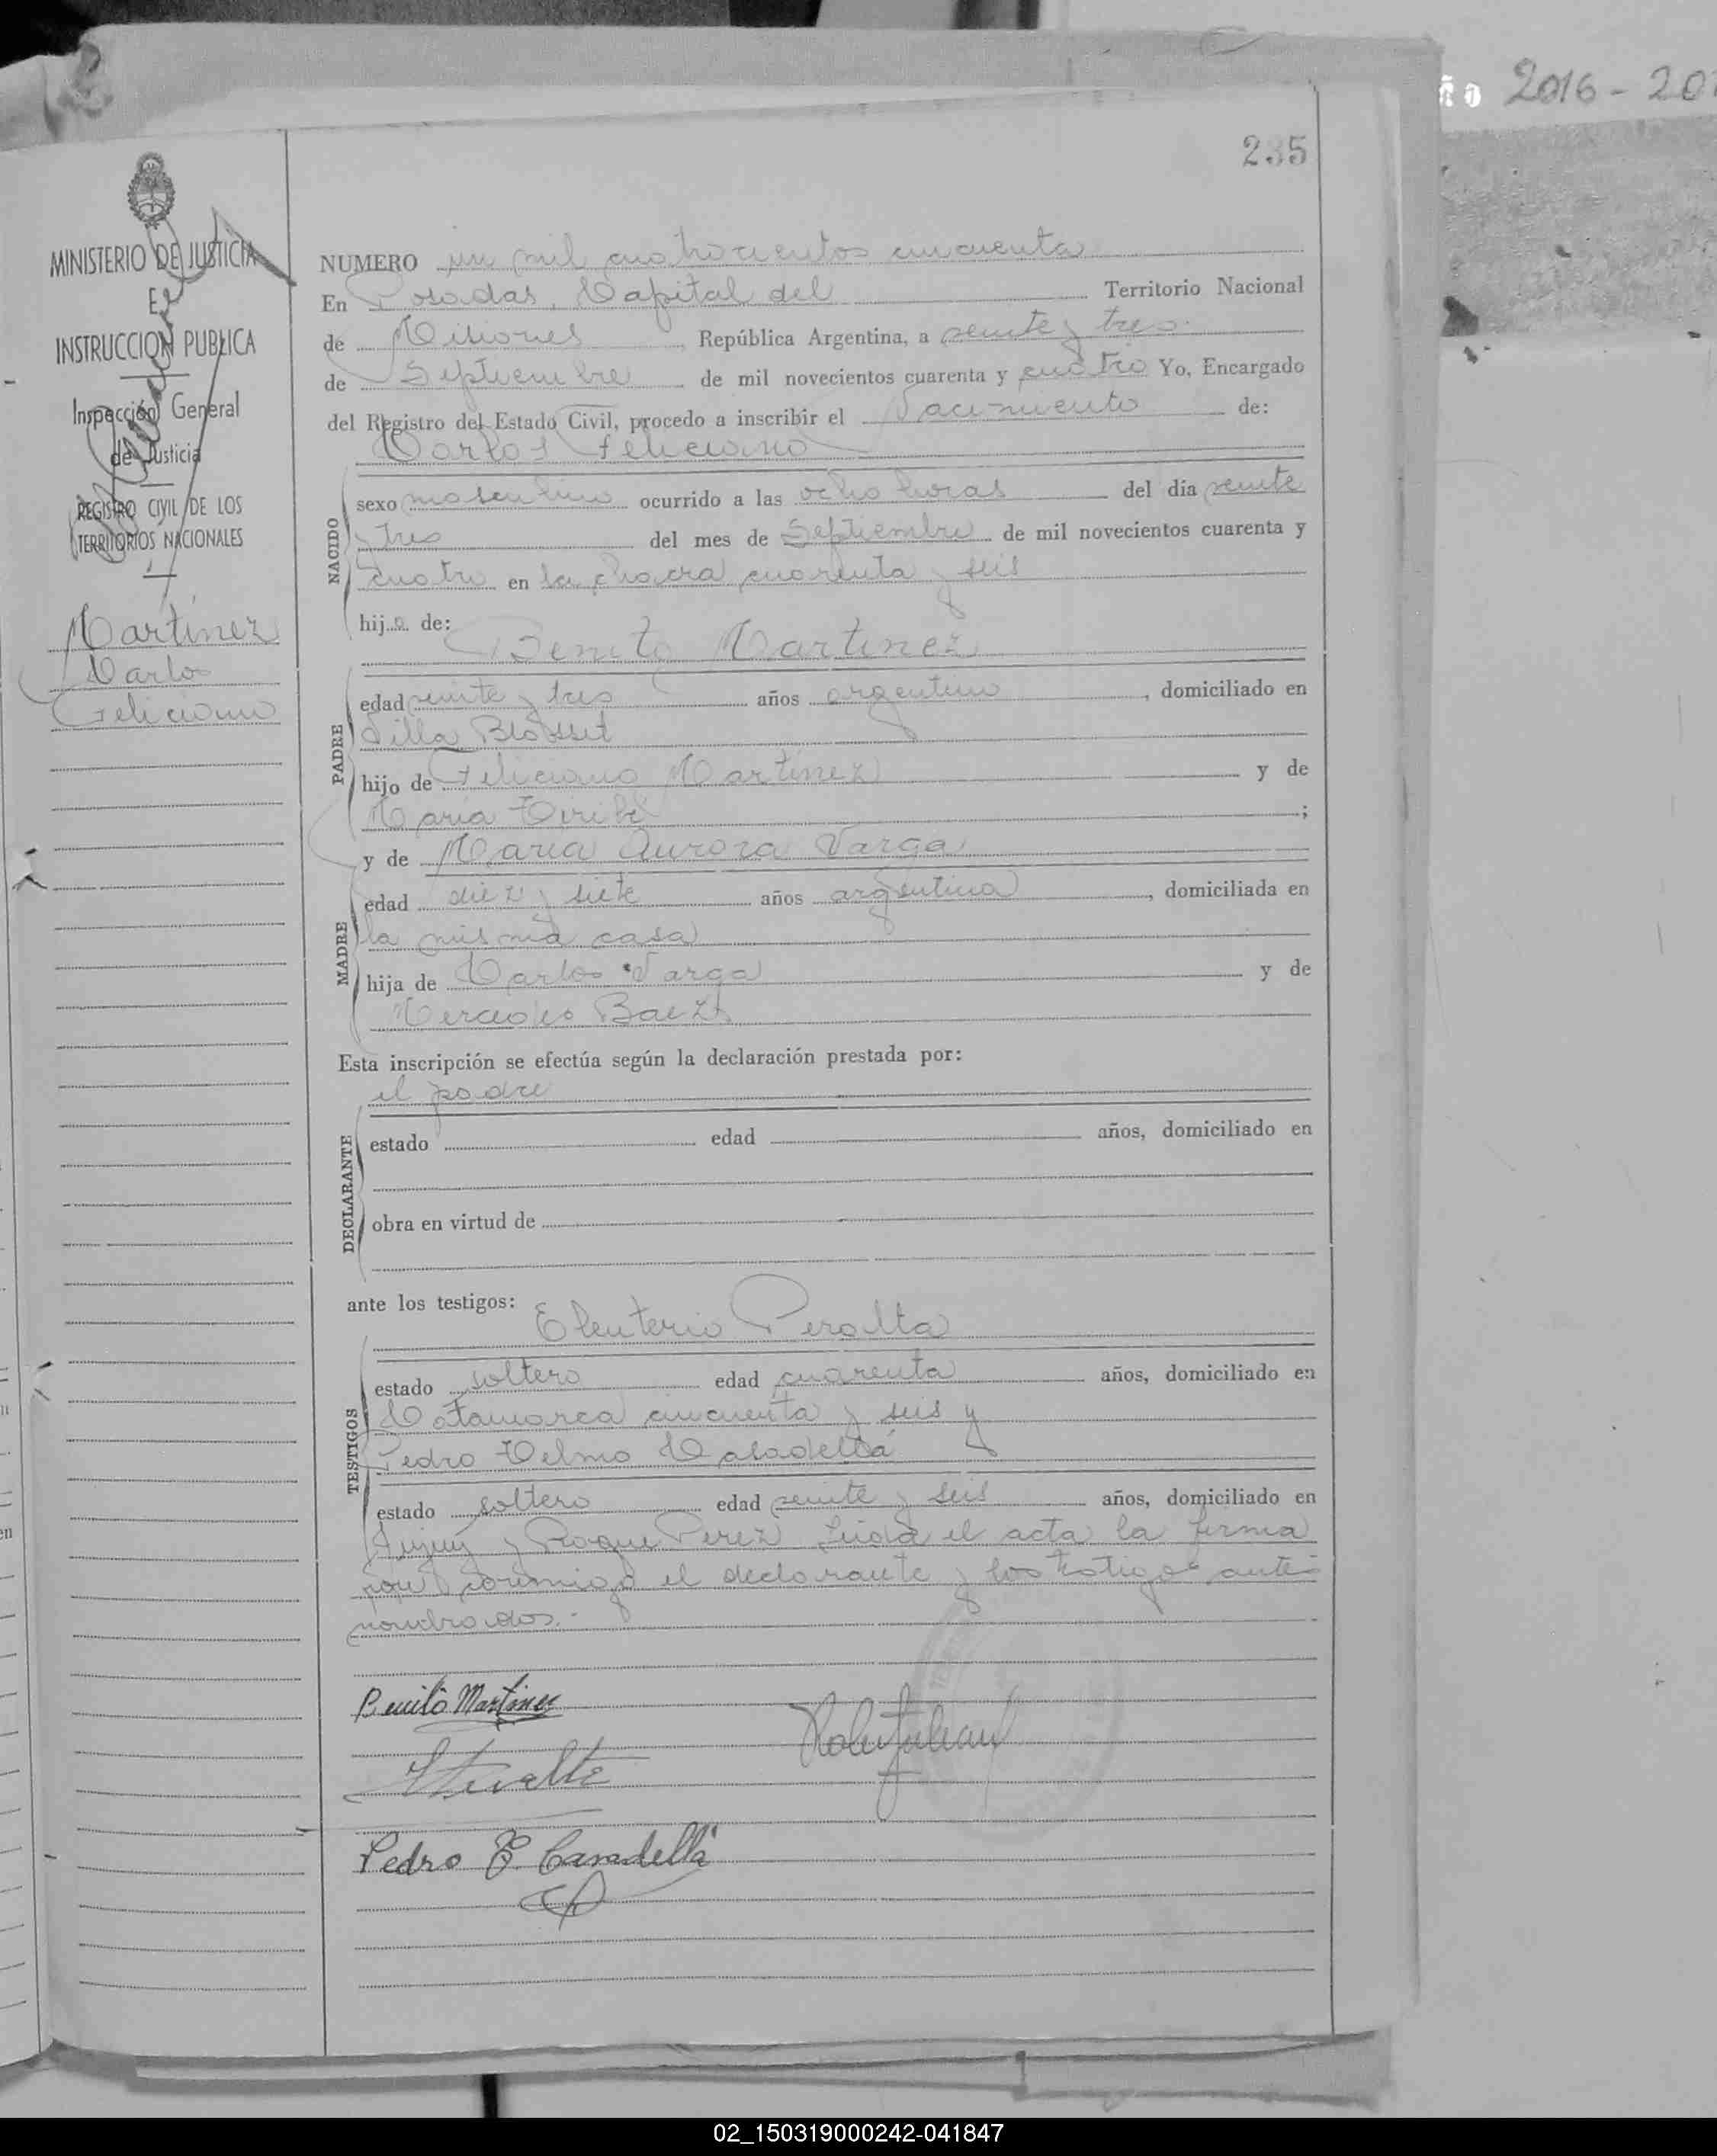 ño 2016-20
235
MINISTERIO DE JUSTICIA
E
INSTRUCCION PUBLICA
Inspección General
de Justicia
REGISTRO CIVIL DE LOS
TERRITORIOS NACIONALES
Martinez
Carlos
Feliciano
NUMERO un mil cuatrocientos cincuenta
En Posadas, Capital del Territorio Nacional
de Misiones República Argentina, a veinte y tres
de Septiembre de mil novecientos cuarenta y cuatro Yo, Encargado
del Registro del Estado Civil, procedo a inscribir el Nacimiento de:
Carlos Feliciano
NACIDO
sexo masculino ocurrido a las ocho horas del día veinte
tres del mes de Septiembre de mil novecientos cuarenta y
cuatro en la chacra cuarenta y seis
hijo de:
Benito Martinez
PADRE
edad veinte y tres años argentino, domiciliado en
Villa Blosset
hijo de Feliciano Martinez y de
Maria ;
y de Maria Aurora Varga
MADRE
edad diez y siete años argentina, domiciliada en
la misma casa
hija de Carlos Varga y de
Mercedes Baez
Esta inscripción se efectúa según la declaración prestada por:
el padre
DECLARANTE
estado edad años, domiciliado en
obra en virtud de
ante los testigos:
Eleuterio Peralta
TESTIGOS
estado soltero edad cuarenta años, domiciliado en
Catamarca cincuenta y seis y
Pedro Telmo Casadellá
estado soltero edad veinte y seis años, domiciliado en
Jujuy y Roque Perez Leida el acta la firma
con conmigo el declarante y los testigos ante
nombrados.-
Benito Martinez
Peralta
Pedro T. Casadellá
02_150319000242-041847